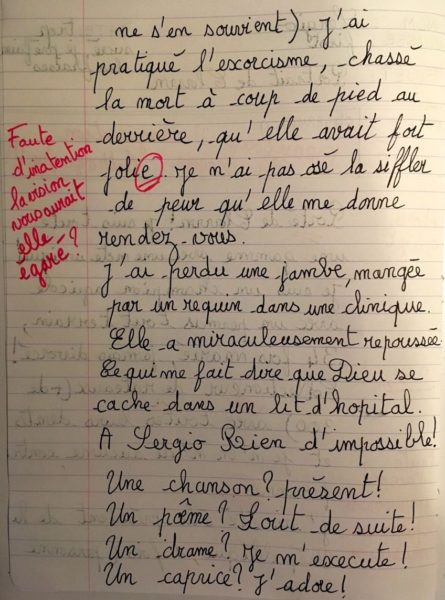 ne s'en souvient) J'ai
pratiqué l'exorcisme, chassé
la mort à coup de pied au
derrière, qu'elle avait fort
jolie. Je n'ai pas osé la siffler
de peur qu'elle me donne
rendez-vous.
J'ai perdu une jambe, mangée
par un requin dans une clinique.
Elle a miraculeusement repoussée.
Ce qui me fait dire que Dieu se
cache dans un lit d'hopital.
A Sergio Rien d'impossible!
Une chanson? présent!
Un poême? Tout de suite!
Un drame? Je m'execute!
Un caprice? J'adore!
Faute
d'inatention
la vision
vous aurait
elle
égaré?